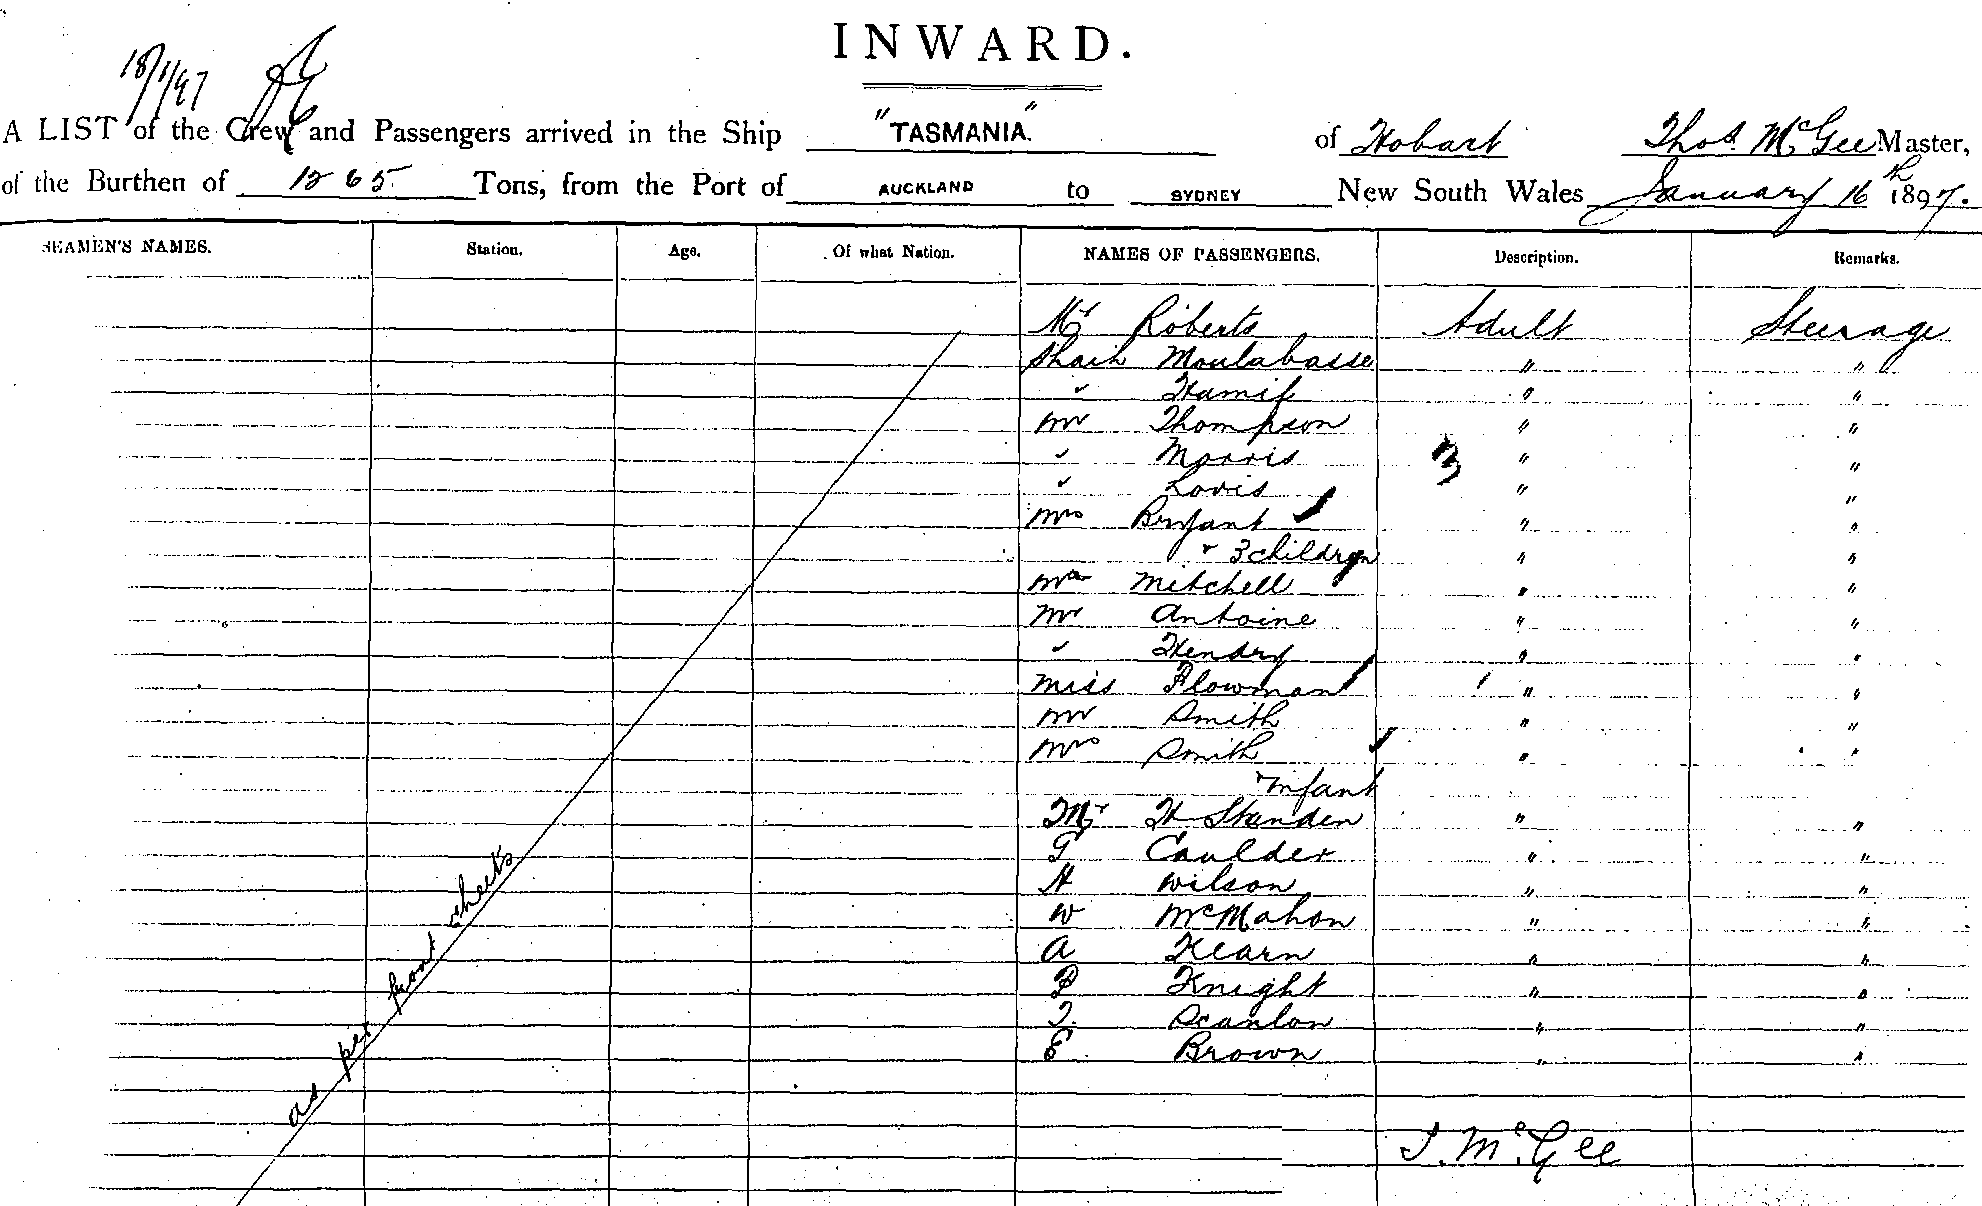 INWARD.
18/1/97
A LIST of the Crew and Passengers arrived in the Ship "TASMANIA". of Hobart Thos. McGee Master,
of the Burthen of 1265 Tons, from the Port of AUCKLAND to SYDNEY New South Wales January 16th 1897.
SEAMEN'S NAMES. Station. Age. Of what Nation. NAMES OF PASSENGERS. Description. Remarks.
Mr Roberts Adult Steerage
Shaik Moulabasse " "
" Hamif " "
Mr Thompson " "
" Morris 3 " "
" Lovis " "
Mrs Bryant " "
+ 3 children " "
Mr Mitchell " "
Mr Antoine " "
" Hendry " "
Miss Plowman 1 " "
Mr Smith " "
Mrs Smith " "
+ Infant
Mr H Standen " "
G Caulder " "
H Wilson " "
W McMahon " "
A Kearn " "
P Knight " "
T. Scanlon " "
E Brown " "
as per front sheets
T. McGee